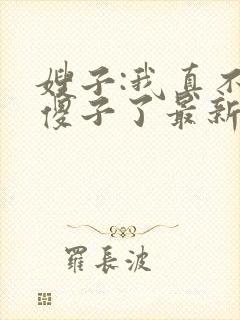 嫂子:我真不
傻子了最新
羅長波